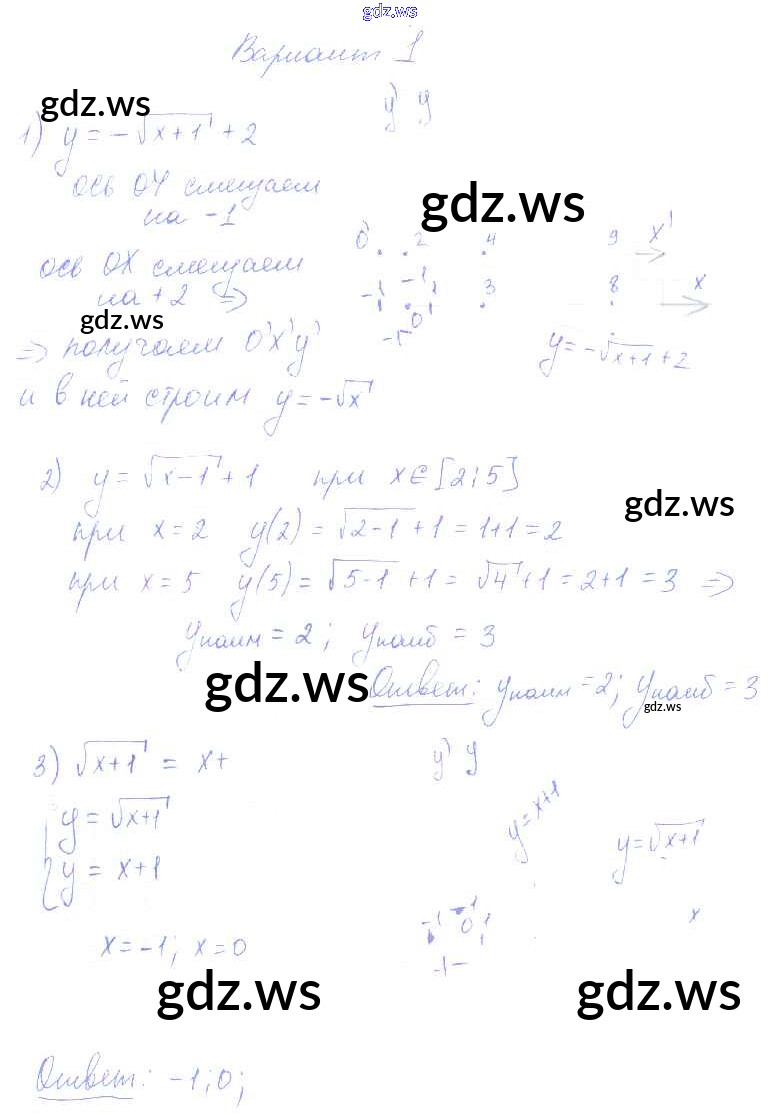 gdz.ws
Вариант 1
gdz.ws
1) y = -√(x+1) + 2
y' y
ось OY смещаем
на -1
gdz.ws
ось OX смещаем
на +2 ⇒
gdz.ws
0' 2 4 9 x'
-1 -1 1 3 8 x
0
-1
⇒ получаем O'x'y'
y = -√(x+1) + 2
и в ней строим y = -√x
2) y = √(x-1) + 1 при x ∈ [2; 5]
gdz.ws
при x = 2 y(2) = √(2-1) + 1 = 1+1 = 2
при x = 5 y(5) = √(5-1) + 1 = √4 + 1 = 2+1 = 3 ⇒
yнаим = 2; yнаиб = 3
gdz.ws
Ответ: yнаим = 2; yнаиб = 3
gdz.ws
3) √(x+1) = x+
y' y
{ y = √(x+1)
y = x+1
y = x+1
y = √(x+1)
-1 1 0 1 x
-1
x = -1; x = 0
gdz.ws
gdz.ws
Ответ: -1; 0;